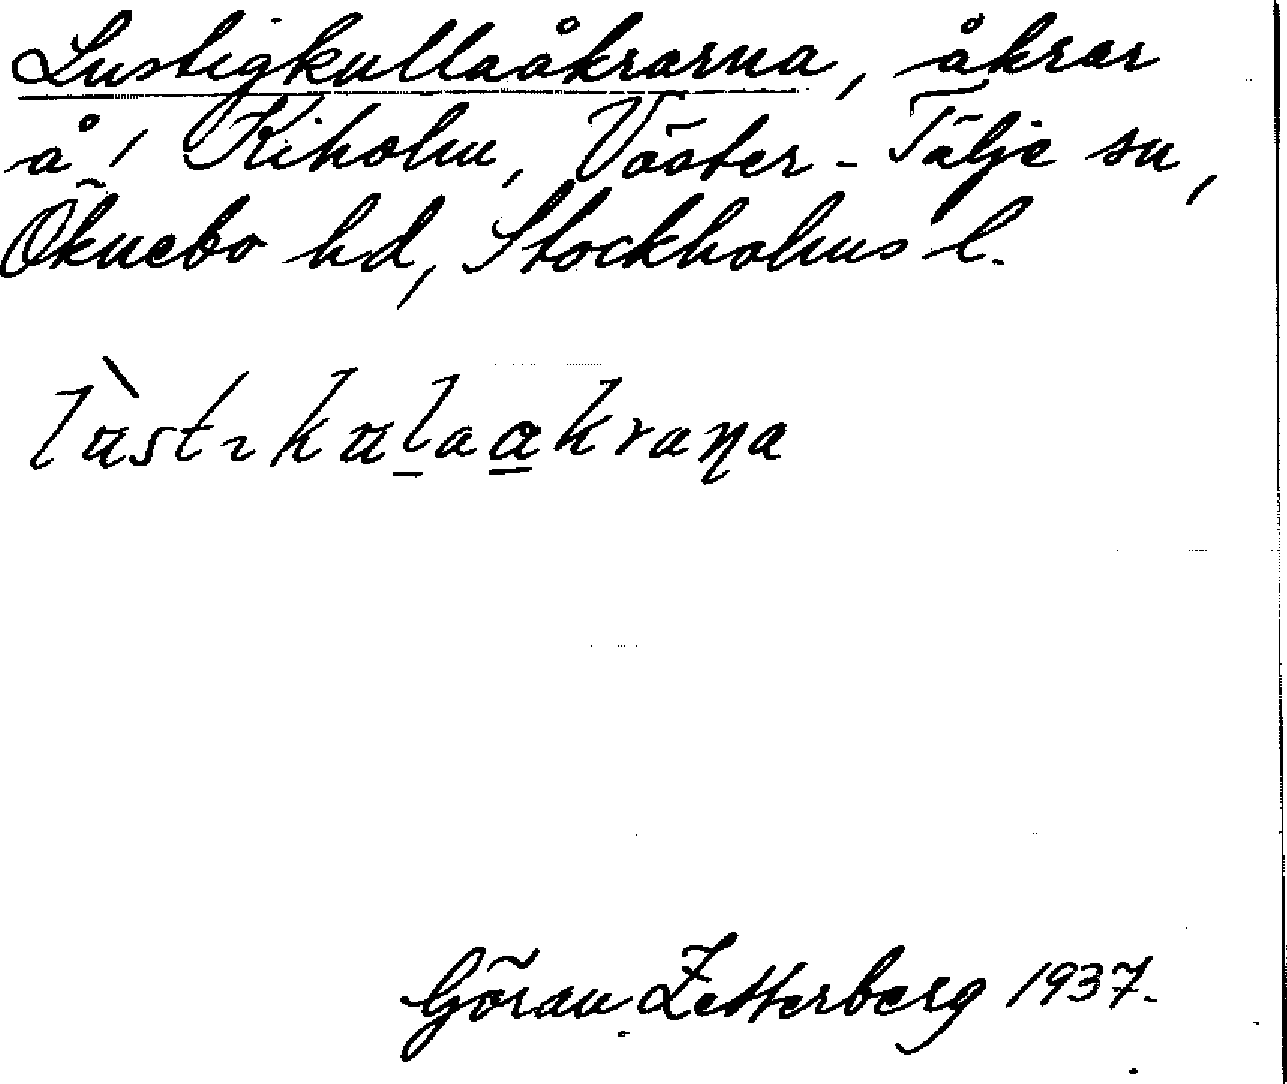 Lustigkullaåkrarna, åkrar
å 1 Kiholm, Väster-Tälje sn,
Öknebo hd, Stockholms l.
lùstɩkulaakraṇa
Göran Zetterberg 1937.